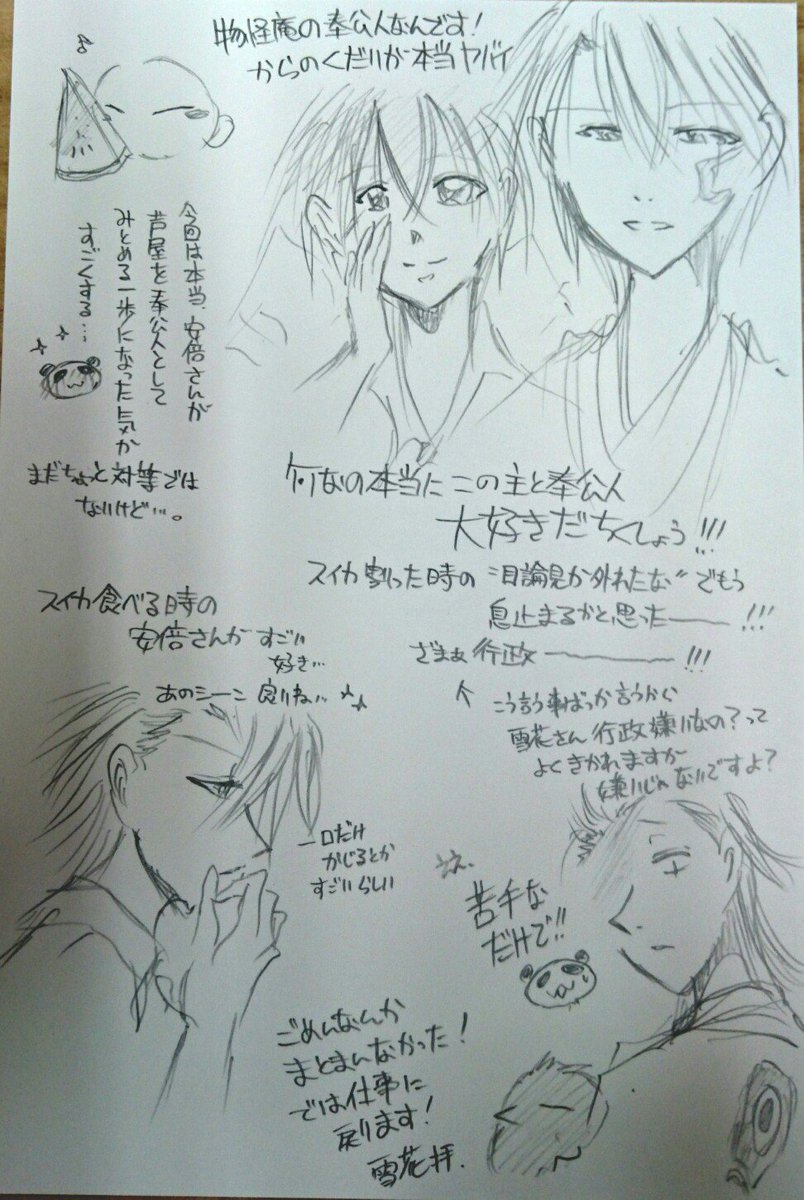 物怪庵の奉公人なんです!
からのくだりが本当ヤバイ
今回は本当、安倍さんが
芦屋を奉公人として
みとめる一歩になった気が
すごくする…
まだちょっと対等では
ないけど…。
本当にこの主と奉公人
大好きだちくしょう!!!
スイカ割った時の〝目論見が外れたな〟でもう
息止まるかと思ったーー!!!
ざまぁ行政ーーー!!!
↑
こう言う事ばっか言うから
雪花さん行政嫌いなの?って
よくきかれますが
嫌いじゃないですよ?
スイカ食べる時の
安倍さんがすごい
好き…
あのシーン良いね…
一口だけ
かじるとか
すごいらしい
苦手な
だけで!!
ごめんなんか
まとまんなかった!
では仕事に
戻ります!
雪花拝.